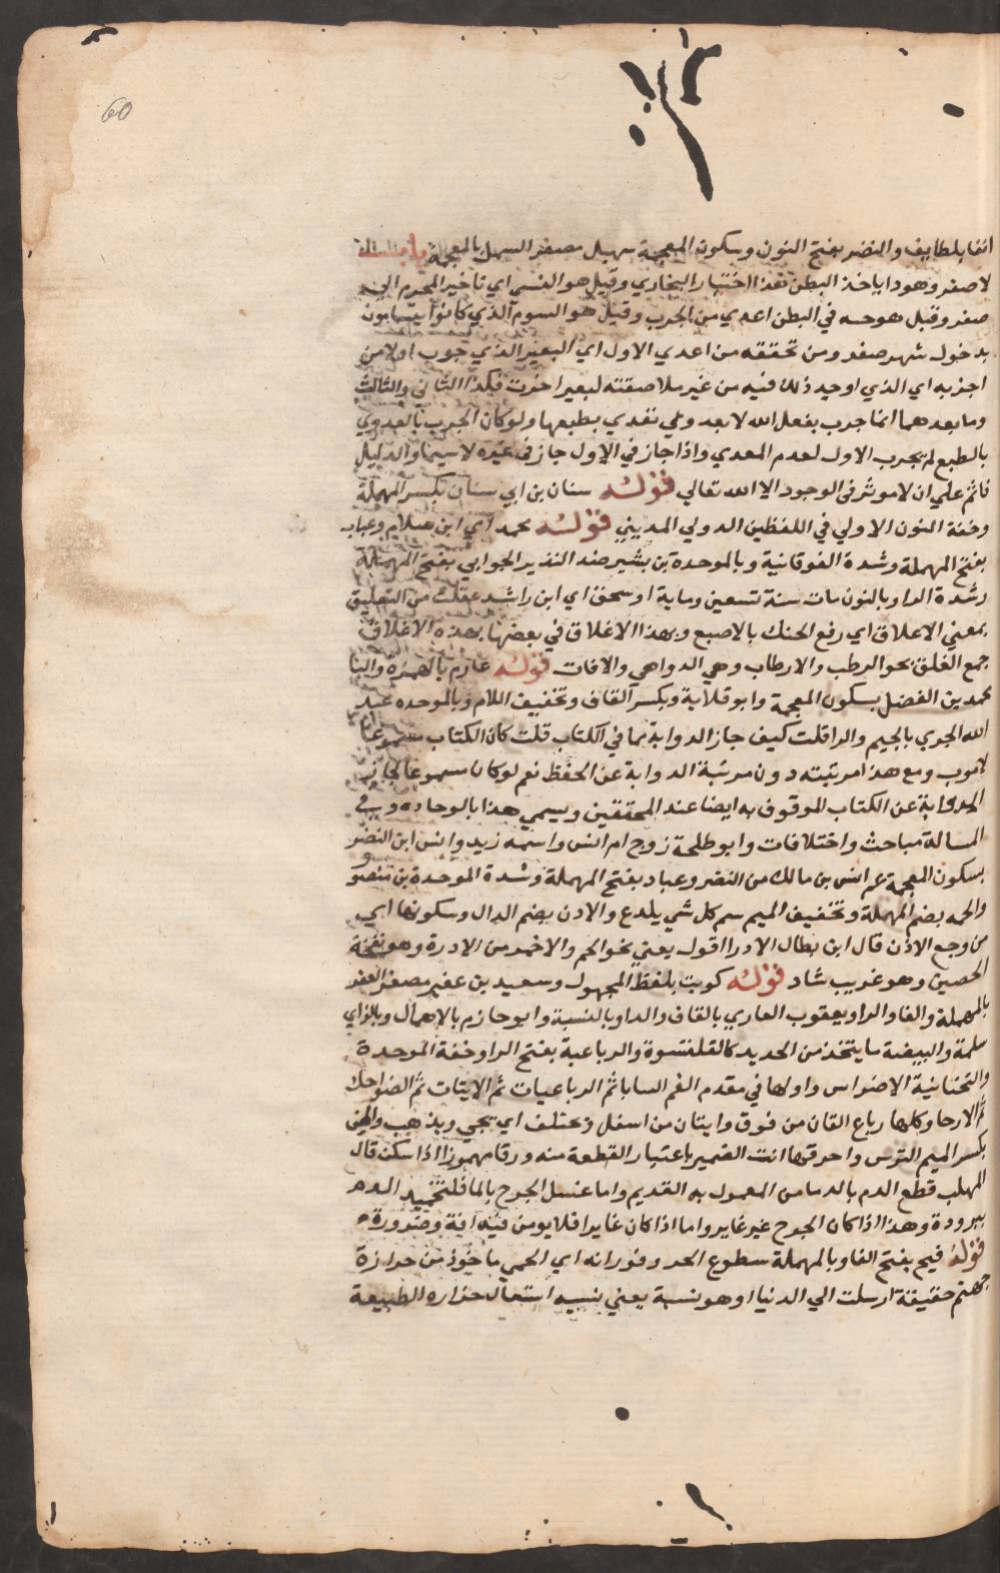 60
انفا بلطايف والنضر بفتح النون وسكون المعجمة سهيل مصغر السهل بالمعجمة باب
لا صفر وهو دا ياخذ البطن هذا اختيار البخاري وقيل هو النسي اي تاخير المحرم الي
صفر وقيل هو حيه في البطن اعدي من الجرب وقيل هو الشوم الذي كانوا يتشامون
بدخول شهر صفر ومن تحققه من اعدي الاول اي البعير الذي جرب اولا من
اجزبه اي الذي اوجد ذلك فيه من غير ملاصقته لبعير اخرت فكذا الثاني والثالث
وما بعدهما انما جرب بفعل الله لا بعدوي تعدي بطبعها ولو كان الجرب بالعدوي
بالطبع لم يجرب الاول لعدم المعدي واذا جاز في الاول جاز في غيره لا سيما والدليل
قائم علي ان لا موثر في الوجود الا الله تعالي قوله سنان بن ابي سنان بكسر المهملة
وخفة النون الاولي في اللفظين الدولي المديني قوله محمد اي ابن سلام وعباب
بفتح المهملة وشدة الفوقانية وبالموحدة بن بشير ضد النذير الجوابي بفتح المهملة
وشدة الرا وبالنون مات سنة تسعين وماية اوسحق اي ابن راشد علقت من التعليق
بمعني الاعلاق اي رفع الحنك بالاصبع وبهذا الاغلاق في بعضها بهذه الاغلاق
جمع الغلق نحو الرطب والارطاب وهي الدواهي والافات قوله عازم بالهمزه والنا
محمد بن الفضل بسكون المعجمة وابو قلابة وبكسر القاف وتخفيف اللام وبالموحده عبد
الله الجري بالجيم والرا قلت كيف جاز الرواية مما في الكتاب قلت كان الكتاب سموعا
لايوب ومع هذا مرتبته دون مرتبة الرواية عن الحفظ نعم لو كان سموعا لجاز
الرواية عن الكتاب الموقوف به ايضا عند المحققين ويسمي هذا بالوجاده وفي
المسالة مباحث واختلافات وابو طلحة زوج ام انس واسمه زيد وانس ابن النضر
بسكون المعجمة عم انس بن مالك من النضر وعباد بفتح المهملة وشدة الموحدة بن منصو
والحمه بضم المهملة وتخفيف الميم سم كل شي يلدغ والاذن بضم الدال وسكونها اي
من وجع الاذن قال ابن بطال الادر اقول يعني نحو الحمر والاحمر من الادرة وهو نفخة
الحصين وهو غريب شاد قوله كويت بلفظ المجهول وسعيد بن عفير مصغر العفر
بالمهملة والفا والرا ويعقوب القاري بالقاف والرا وبالنسبة وابو حازم بالاهمال وبالزاي
سلمة والبيضة ما يتخذ من الحديد كالقلنسوة والرباعية بفتح الرا وخفة الموحدة
والتحتانية الاضراس واولها في مقدم الفم الثنايا ثم الرباعيات ثم الانيات ثم الضواحك
ثم الارحا وكلها رباع اثقان من فوق واثنان من اسفل ويختلف اي يجي ويذهب والمجن
بكسر الميم الترس واحرقها انت الضمير باعتبار القطعة منه ورقا مهموزا اذا سكن قال
المهلب قطع الدم بالرماد من المعمول به القديم واما غسل الجرح بالما فلتخميد الدم
ببرودة وهذا اذا كان الجرح غير غاير واما اذا كان غايرا فلا يومن فيه افة وضرورة
قوله فيح بفتح الفا وبالمهملة سطوع الحر وفورانه اي الحمي ماخوذ من حرارة
جهنم حقيقة ارسلت الي الدنيا او هو نسبة يعني نسبه استعال حراره الطبيعة